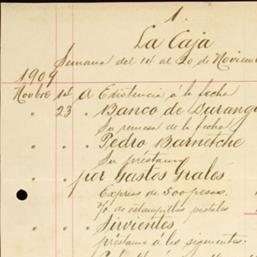 1.
La Caja
Semana del 14 al 20 de Noviem
1909
Novbre 14 A Existencia á la fecha
" 23 " Banco de Durango
Su remesa de la fecha
" " " Pedro Barnetche
Su préstamo
" " " por Gastos Grales
Express de 500 pesos.
% de estampillas postales
" " " Sirvientes
préstamo á los siguientes: